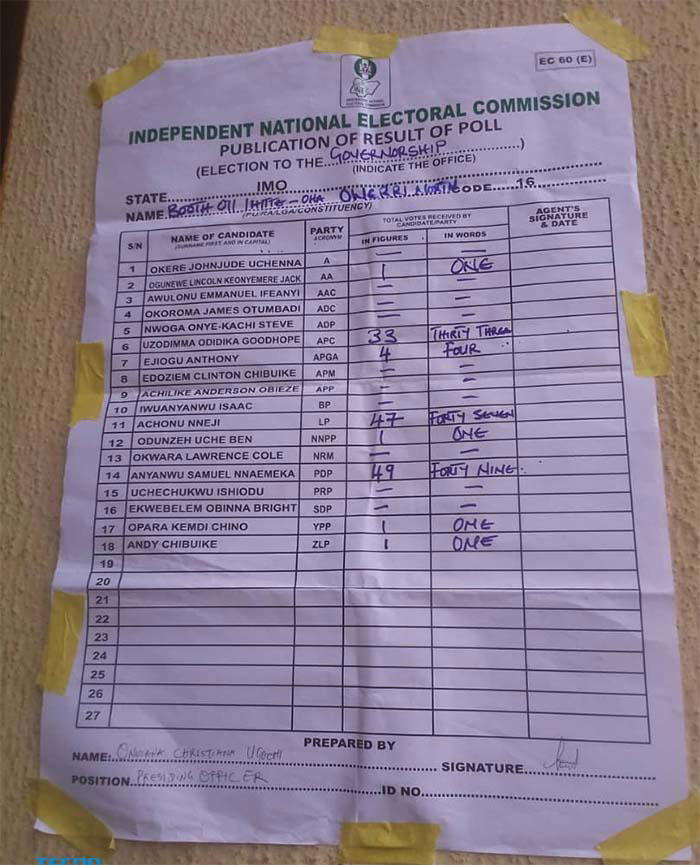 EC 60 (E)
INDEPENDENT NATIONAL ELECTORAL COMMISSION
PUBLICATION OF RESULT OF POLL
(ELECTION TO THE...GOVERNORSHIP...)
(INDICATE THE OFFICE)
STATE...IMO...CODE...16...
NAME BOOTH 011 IHITTE-OHA OWERRI NORTH
(PU/RA/LGA/CONSTITUENCY)
S/N NAME OF CANDIDATE (SURNAME FIRST, AND IN CAPITAL) PARTY ACRONYM TOTAL VOTES RECEIVED BY CANDIDATE/PARTY IN FIGURES IN WORDS AGENT'S SIGNATURE & DATE
1 OKERE JOHNJUDE UCHENNA A — —
2 OGUNEWE LINCOLN KEONYEMERE JACK AA 1 ONE
3 AWULONU EMMANUEL IFEANYI AAC — —
4 OKOROMA JAMES OTUMBADI ADC — —
5 NWOGA ONYE-KACHI STEVE ADP — —
6 UZODIMMA ODIDIKA GOODHOPE APC 33 THIRTY THREE
7 EJIOGU ANTHONY APGA 4 FOUR
8 EDOZIEM CLINTON CHIBUIKE APM — —
9 ACHILIKE ANDERSON OBIEZE APP — —
10 IWUANYANWU ISAAC BP — —
11 ACHONU NNEJI LP 47 FORTY SEVEN
12 ODUNZEH UCHE BEN NNPP 1 ONE
13 OKWARA LAWRENCE COLE NRM — —
14 ANYANWU SAMUEL NNAEMEKA PDP 49 FORTY NINE
15 UCHECHUKWU ISHIODU PRP — —
16 EKWEBELEM OBINNA BRIGHT SDP — —
17 OPARA KEMDI CHINO YPP 1 ONE
18 ANDY CHIBUIKE ZLP 1 ONE
19
20
21
22
23
24
25
26
27
PREPARED BY
NAME: CHRISTIANA UGOCHI SIGNATURE
POSITION PRESIDING OFFICER ID NO.
TECNO